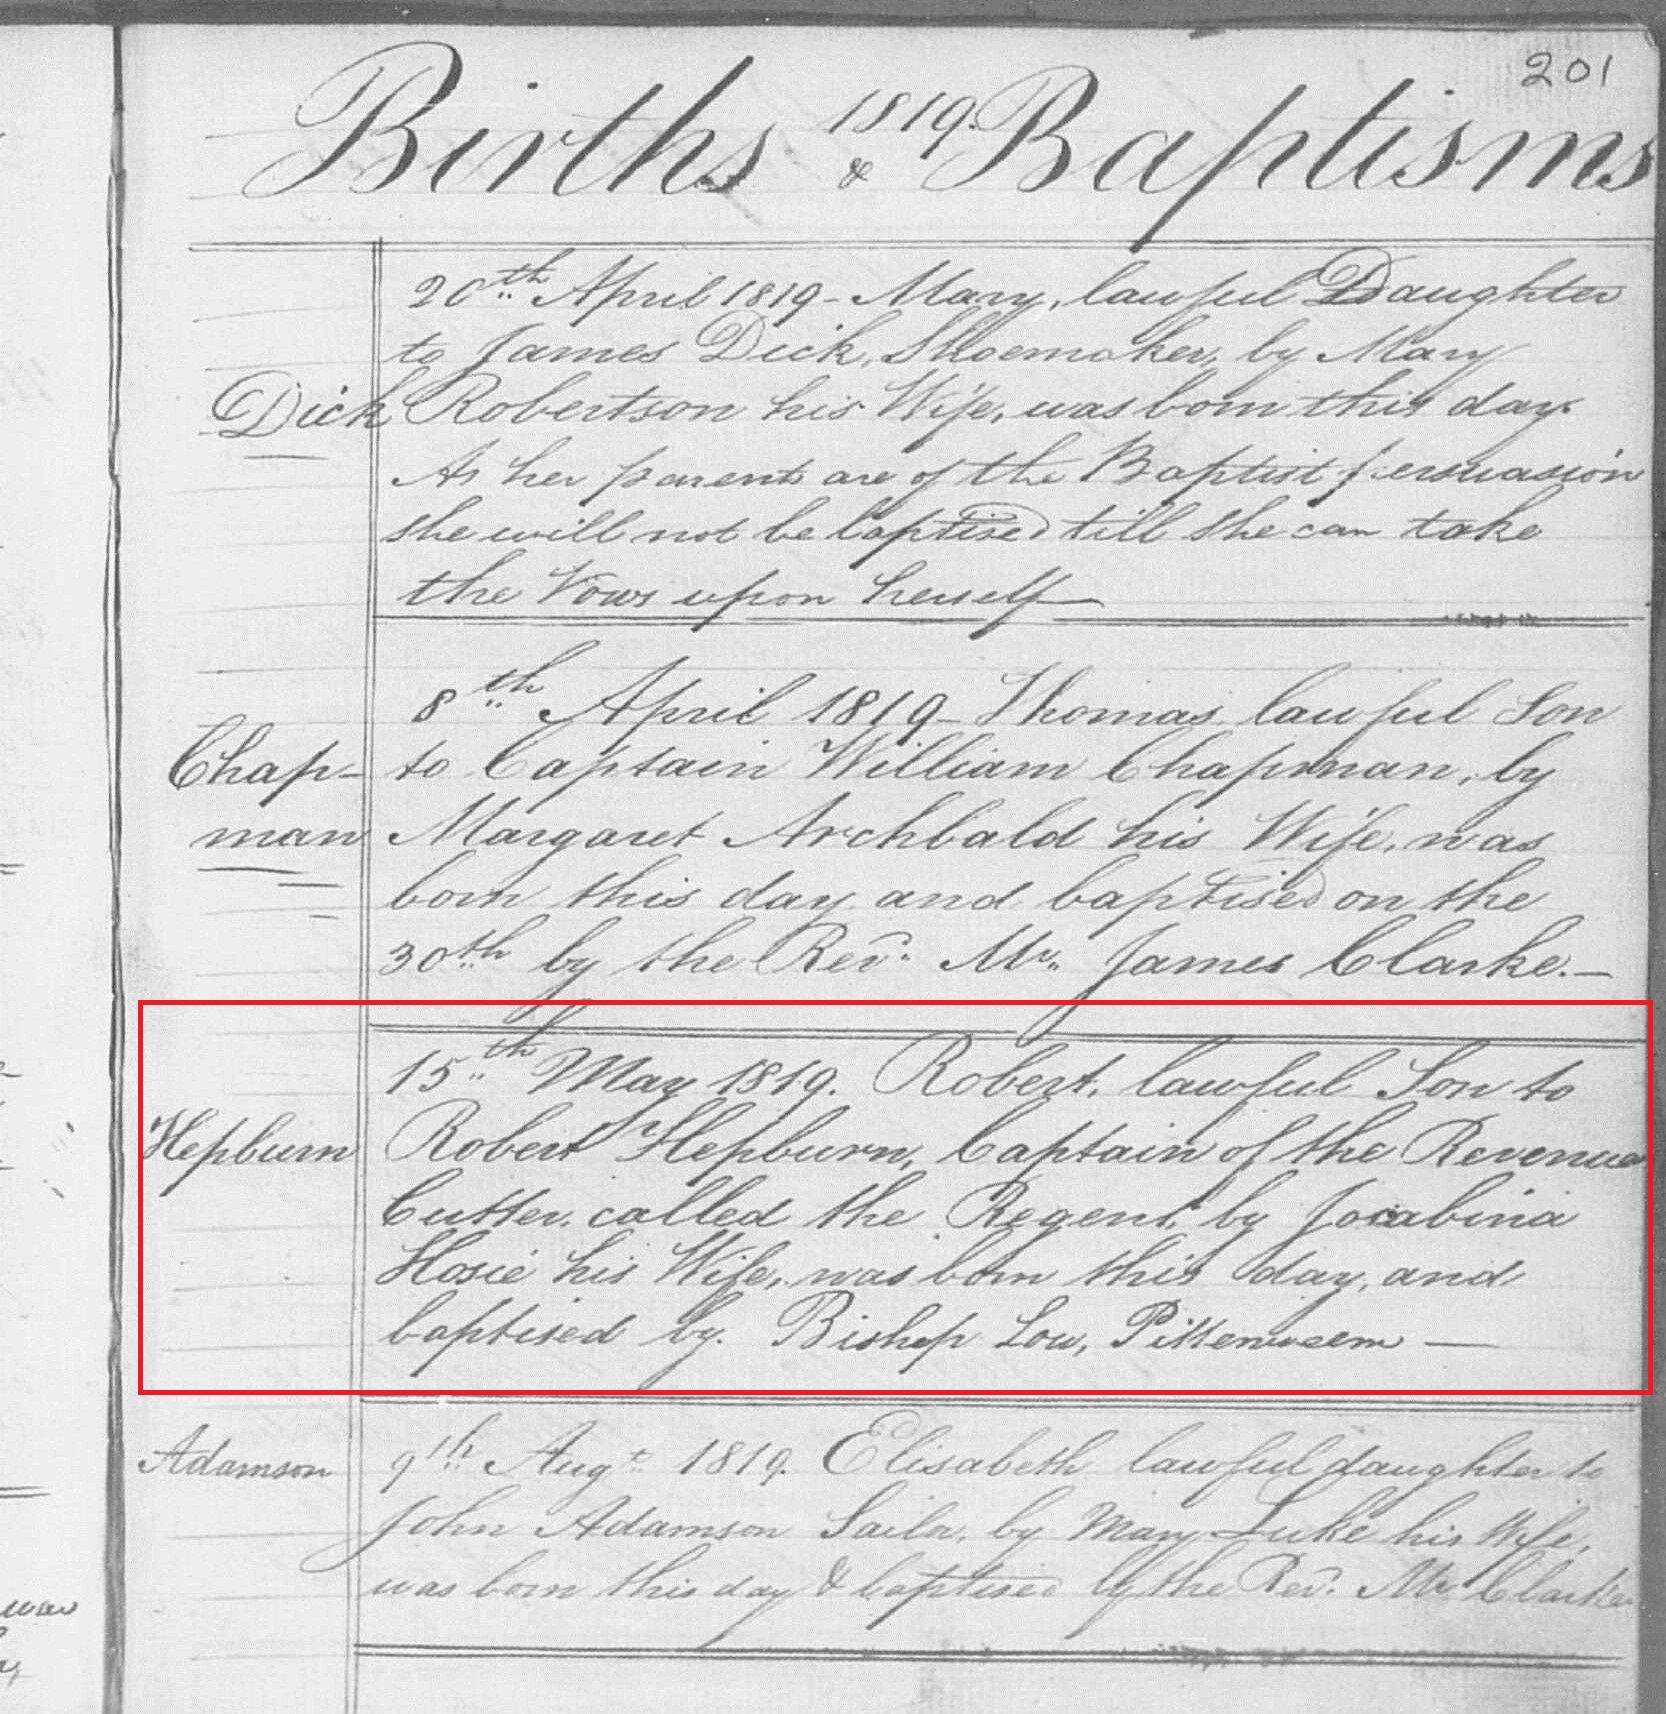 201
1819.
Births & Baptisms
20th April 1819 - Mary, lawful Daughter
to James Dick, Shoemaker, by Mary
Dick Robertson his Wife, was born this day.
As her parents are of the Baptist persuasion
she will not be baptised till she can take
the Vows upon herself
8th April 1819 - Thomas lawful Son
Chap- to Captain William Chapman, by
man Margaret Archbald his Wife, was
born this day and baptised on the
30th by the Revd. Mr. James Clarke. -
15th May 1819. Robert, lawful Son to
Hepburn Robert Hepburn, Captain of the Revenue
Cutter, called the Regent, by Jocabina
Hosie his Wife, was born this day, and
baptised by. Bishop Low, Pittenweem -
Adamson 9th Augt. 1819. Elisabeth lawful daughter to
John Adamson Sailor, by Mary Luke his Wife,
was born this day & baptised by the Revd. Mr. Clarke